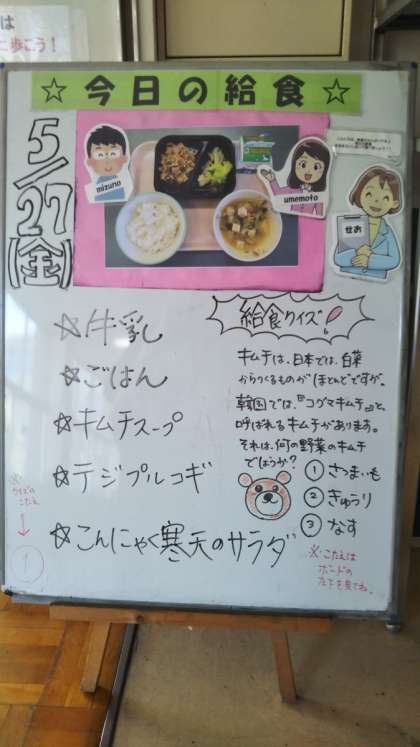 は
に歩こう！
☆今日の給食☆
5/27(金)
mizuno
umemoto
せお
☆牛乳
☆ごはん
☆キムチスープ
☆テジプルコギ
☆こんにゃく寒天のサラダ
給食クイズ
キムチは、日本では、白菜
からつくるものがほとんどですが、
韓国では、『コグマキムチ』と、
呼ばれるキムチがあります。
それは、何の野菜のキムチ
でしょうか？
①さつまいも
②きゅうり
③なす
※こたえは
ボードの
左下を見てね。
※
クイズの
こたえ
↓
①